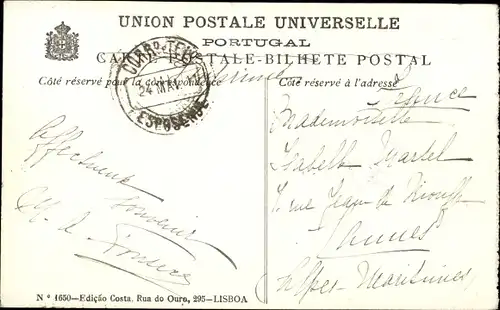 UNION POSTALE UNIVERSELLE
PORTUGAL
CARTE POSTALE-BILHETE POSTAL
Côté réservé pour la correspondance
Côté réservé à l'adresse
CORRO. TELº
24 MAI
ESPOSENDE
France
Mademoiselle
Isabelle Martel
rue Jean de
Cannes
Alpes-Maritimes
Affectueux
Souvenir
Nº 1650-Edição Costa. Rua do Ouro, 295-LISBOA